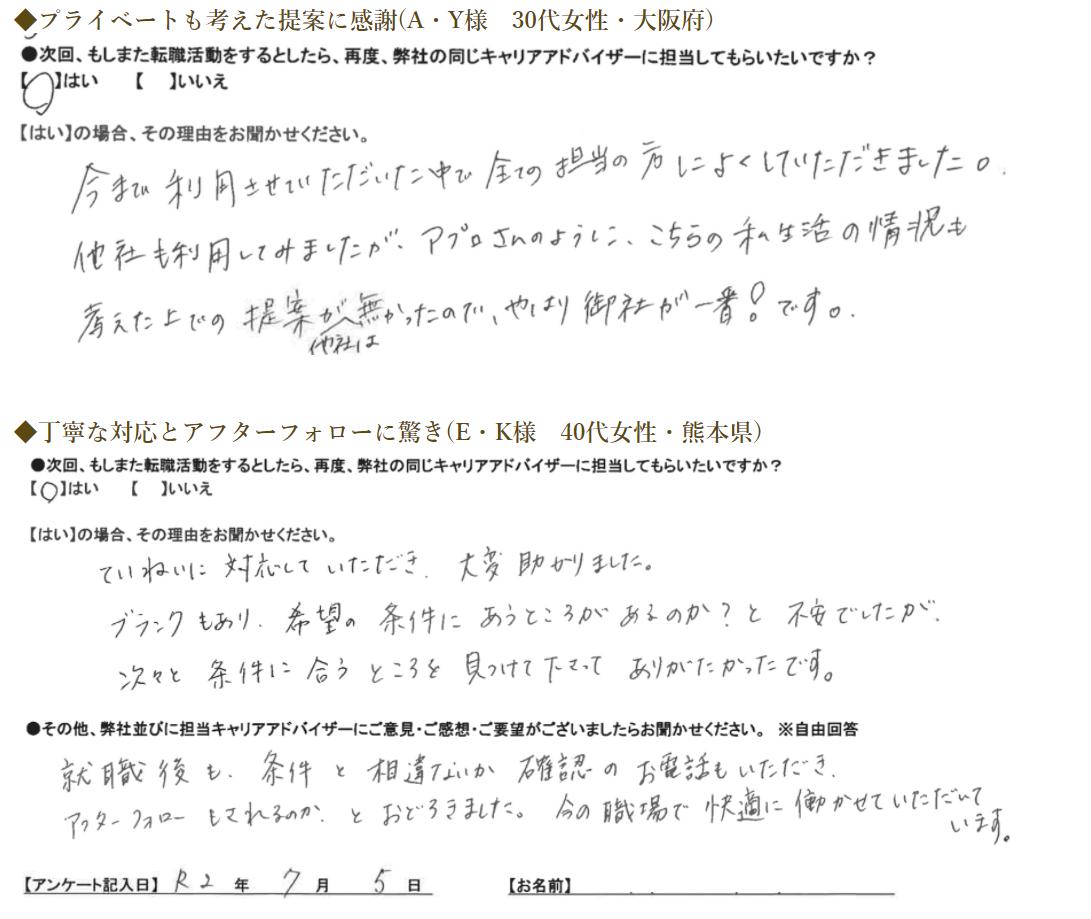 ◆プライベートも考えた提案に感謝(A・Y様　30代女性・大阪府)
●次回、もしまた転職活動をするとしたら、再度、弊社の同じキャリアアドバイザーに担当してもらいたいですか？
【○】はい　　【　】いいえ
【はい】の場合、その理由をお聞かせください。
今まで利用させていただいた中で全ての担当の方によくしていただきました。
他社も利用してみましたが、アプロさんのように、こちらの私生活の情況も
考えた上での提案が無かったので、やはり御社が一番！です。
他社は
◆丁寧な対応とアフターフォローに驚き(E・K様　40代女性・熊本県)
●次回、もしまた転職活動をするとしたら、再度、弊社の同じキャリアアドバイザーに担当してもらいたいですか？
【○】はい　　【　】いいえ
【はい】の場合、その理由をお聞かせください。
ていねいに対応していただき、大変助かりました。
ブランクもあり、希望の条件にあうところがあるのか？と不安でしたが、
次々と条件に合うところを見つけて下さってありがたかったです。
●その他、弊社並びに担当キャリアアドバイザーにご意見・ご感想・ご要望がございましたらお聞かせください。　※自由回答
就職後も、条件と相違ないか確認のお電話もいただき、
アフターフォローもされるのか、とおどろきました。今の職場で快適に働かせていただいて
います。
【アンケート記入日】　R2　年　7　月　5　日　　【お名前】